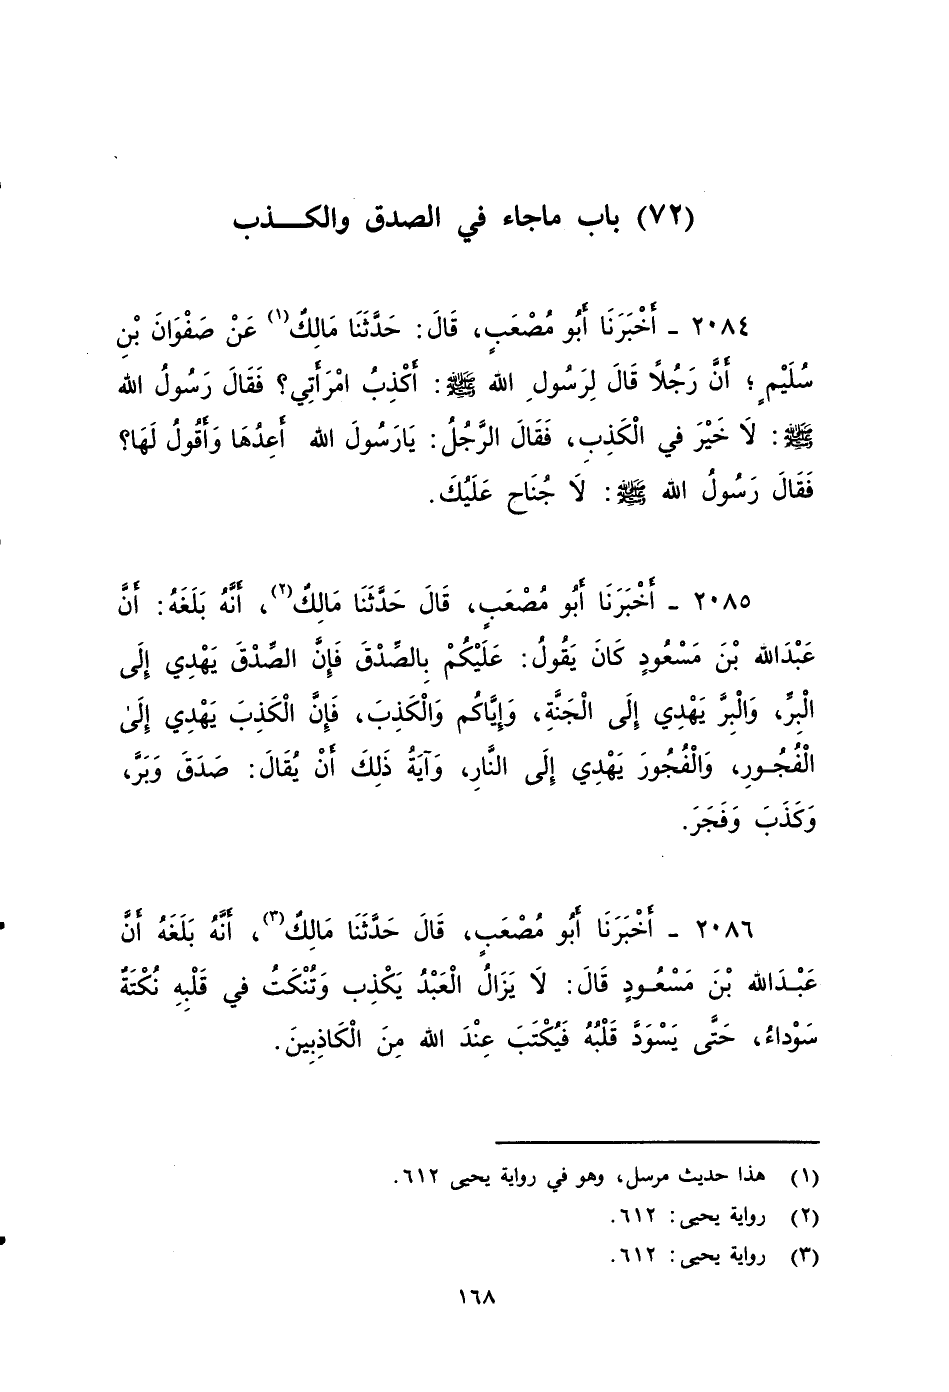 (٧٢) باب ماجاء في الصدق والكـــذب
٢٠٨٤ - أَخْبَرَنَا أَبُو مُصْعَبٍ، قَالَ: حَدَّثَنَا مَالِكٌ(١) عَنْ صَفْوَانَ بْنِ
سُلَيْمٍ؛ أَنَّ رَجُلًا قَالَ لِرَسُولِ الله ﷺ: أَكْذِبُ امْرَأَتِي؟ فَقَالَ رَسُولُ الله
ﷺ: لَا خَيْرَ فِي الْكَذِبِ، فَقَالَ الرَّجُلُ: يَارَسُولَ الله أَعِدُهَا وَأَقُولُ لَهَا؟
فَقَالَ رَسُولُ الله ﷺ: لَا جُنَاح عَلَيْكَ.
٢٠٨٥ - أَخْبَرَنَا أَبُو مُصْعَبٍ، قَالَ حَدَّثَنَا مَالِكٌ(٢)، أَنَّهُ بَلَغَهُ: أَنَّ
عَبْدَالله بْنَ مَسْعُودٍ كَانَ يَقُولُ: عَلَيْكُمْ بِالصِّدْقَ فَإِنَّ الصِّدْقَ يَهْدِي إِلَى
الْبِرِّ، وَالْبِرَّ يَهْدِي إِلَى الْجَنَّةِ، وَإِيَّاكُم وَالْكَذِبَ، فَإِنَّ الْكَذِبَ يَهْدِي إِلَىٰ
الْفُجُـورِ، وَالْفُجُورَ يَهْدِي إِلَى النَّارِ، وَآيَةُ ذَلِكَ أَنْ يُقَالَ: صَدَقَ وَبَرَّ،
وَكَذَبَ وَفَجَرَ.
٢٠٨٦ - أَخْبَرَنَا أَبُو مُصْعَبٍ، قَالَ حَدَّثَنَا مَالِكٌ(٣)، أَنَّهُ بَلَغَهُ أَنَّ
عَبْـدَالله بْنَ مَسْعُـودٍ قَالَ: لَا يَزَالُ الْعَبْدُ يَكْذِب وَتُنْكَتُ في قَلْبِهِ نُكْتَةٌ
سَوْداءُ، حَتَّى يَسْوَدَّ قَلْبُهُ فَيُكْتَبَ عِنْدَ الله مِنَ الْكَاذِبِينَ.
(١) هذا حديث مرسل، وهو في رواية يحيى ٦١٢.
(٢) رواية يحيى: ٦١٢.
(٣) رواية يحيى: ٦١٢.
١٦٨